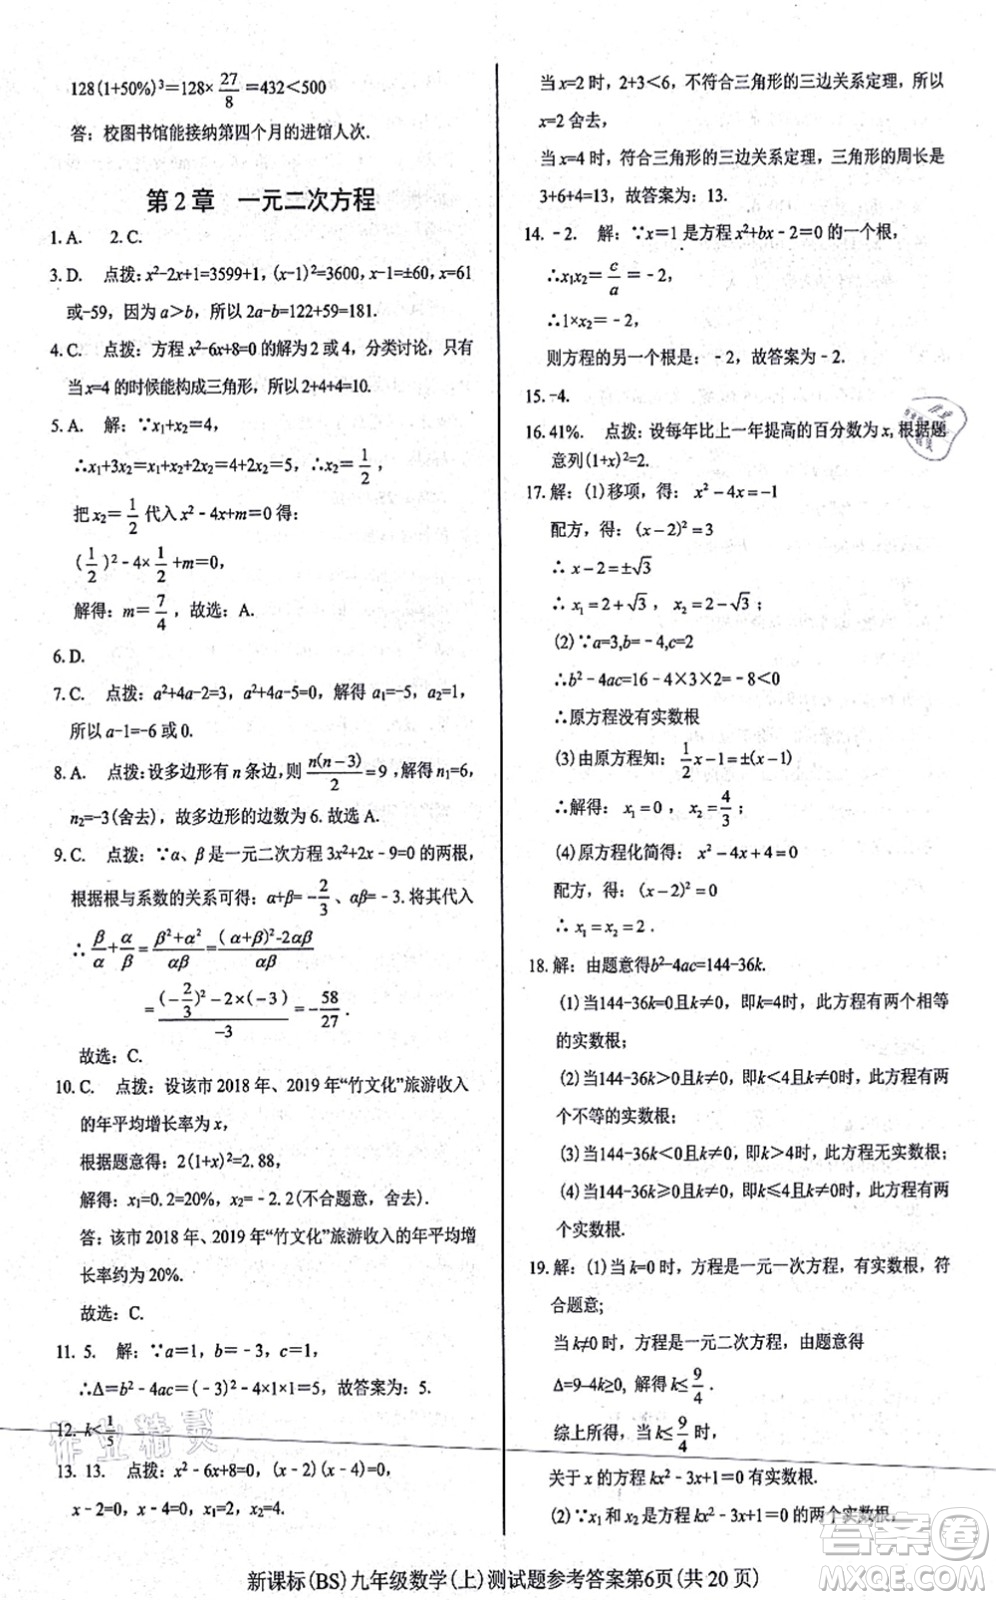 128(1+50%)³=128×27/8=432<500
答：校图书馆能接纳第四个月的进馆人次.
第2章　一元二次方程
1. A.　2. C.
3. D.　点拨：x²-2x+1=3599+1，(x-1)²=3600，x-1=±60，x=61
或-59，因为a＞b，所以2a-b=122+59=181.
4. C.　点拨：方程x²-6x+8=0的解为2或4，分类讨论，只有
当x=4的时候能构成三角形，所以2+4+4=10.
5. A.　解：∵x₁+x₂=4，
∴x₁+3x₂=x₁+x₂+2x₂=4+2x₂=5　∴x₂=1/2，
把x₂=1/2代入x²-4x+m=0得：
(1/2)²-4×1/2+m=0，
解得：m=7/4，故选：A.
6. D.
7. C.　点拨：a²+4a-2=3，a²+4a-5=0，解得a₁=-5，a₂=1，
所以a-1=-6或0.
8. A.　点拨：设多边形有n条边,则n(n-3)/2=9，解得n₁=6，
n₂=-3(舍去)，故多边形的边数为6. 故选A.
9. C.　点拨：∵α、β是一元二次方程3x²+2x-9=0的两根，
根据根与系数的关系可得：α+β=-2/3、αβ=-3. 将其代入
∴β/α+α/β=(β²+α²)/αβ=((α+β)²-2αβ)/αβ
=((-2/3)²-2×(-3))/-3=-58/27.
故选：C.
10. C.　点拨：设该市2018年、2019年“竹文化”旅游收入
的年平均增长率为x，
根据题意得：2(1+x)²=2.88，
解得：x₁=0.2=20%，x₂=-2.2(不合题意，舍去).
答：该市2018年、2019年“竹文化”旅游收入的年平均增
长率约为20%.
故选：C.
11. 5.　解：∵a=1，b=-3，c=1，
∴Δ=b²-4ac=(-3)²-4×1×1=5，故答案为：5.
12. k<1/5
13. 13.　点拨：x²-6x+8=0，(x-2)(x-4)=0，
x-2=0，x-4=0，x₁=2，x₂=4.
当x=2时，2+3＜6，不符合三角形的三边关系定理，所以
x=2舍去，
当x=4时，符合三角形的三边关系定理，三角形的周长是
3+6+4=13，故答案为：13.
14. -2.　解：∵x=1是方程x²+bx-2=0的一个根，
∴x₁x₂=c/a=-2，
∴1×x₂=-2，
则方程的另一个根是：-2，故答案为-2.
15. -4.
16. 41%.　点拨：设每年比上一年提高的百分数为x,根据题
意列(1+x)²=2.
17. 解：(1)移项，得：x²-4x=-1
配方，得：(x-2)²=3
∴x-2=±√3
∴x₁=2+√3，x₂=2-√3；
(2)∵a=3,b=-4,c=2
∴b²-4ac=16-4×3×2=-8<0
∴原方程没有实数根
(3)由原方程知：1/2x-1=±(x-1)
∴解得：x₁=0，x₂=4/3；
(4)原方程化简得：x²-4x+4=0
配方，得：(x-2)²=0
∴x₁=x₂=2.
18. 解：由题意得b²-4ac=144-36k.
(1)当144-36k=0且k≠0，即k=4时，此方程有两个相等
的实数根；
(2)当144-36k>0且k≠0，即k<4且k≠0时，此方程有两
个不等的实数根；
(3)当144-36k<0且k≠0，即k>4时，此方程无实数根；
(4)当144-36k≥0且k≠0，即k≤4且k≠0时，此方程有两
个实数根.
19. 解：(1)当k=0时，方程是一元一次方程，有实数根，符
合题意；
当k≠0时，方程是一元二次方程，由题意得
Δ=9-4k≥0，解得k≤9/4.
综上所述，当k≤9/4时，
关于x的方程kx²-3x+1=0有实数根.
(2)∵x₁和x₂是方程kx²-3x+1=0的两个实数根，
新课标(BS)九年级数学(上)测试题参考答案第6页(共20页)
作业精灵
答案圈
MXQE.COM